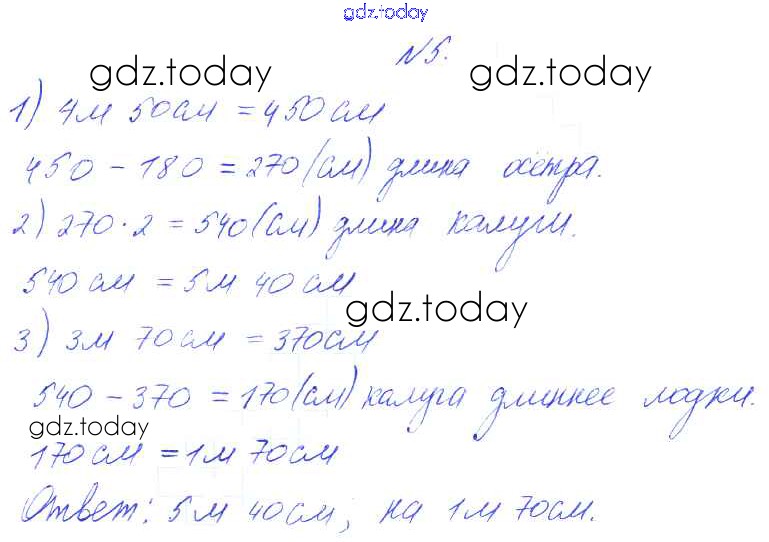 gdz.today
№5.
gdz.today gdz.today
1) 4м 50см = 450см
450 - 180 = 270(см) длина осётра.
2) 270·2 = 540(см) длина калуги.
540см = 5м 40см
gdz.today
3) 3м 70см = 370см
540 - 370 = 170(см) калуга длиннее лодки.
gdz.today
170см = 1м 70см
Ответ: 5м 40см; на 1м 70см.